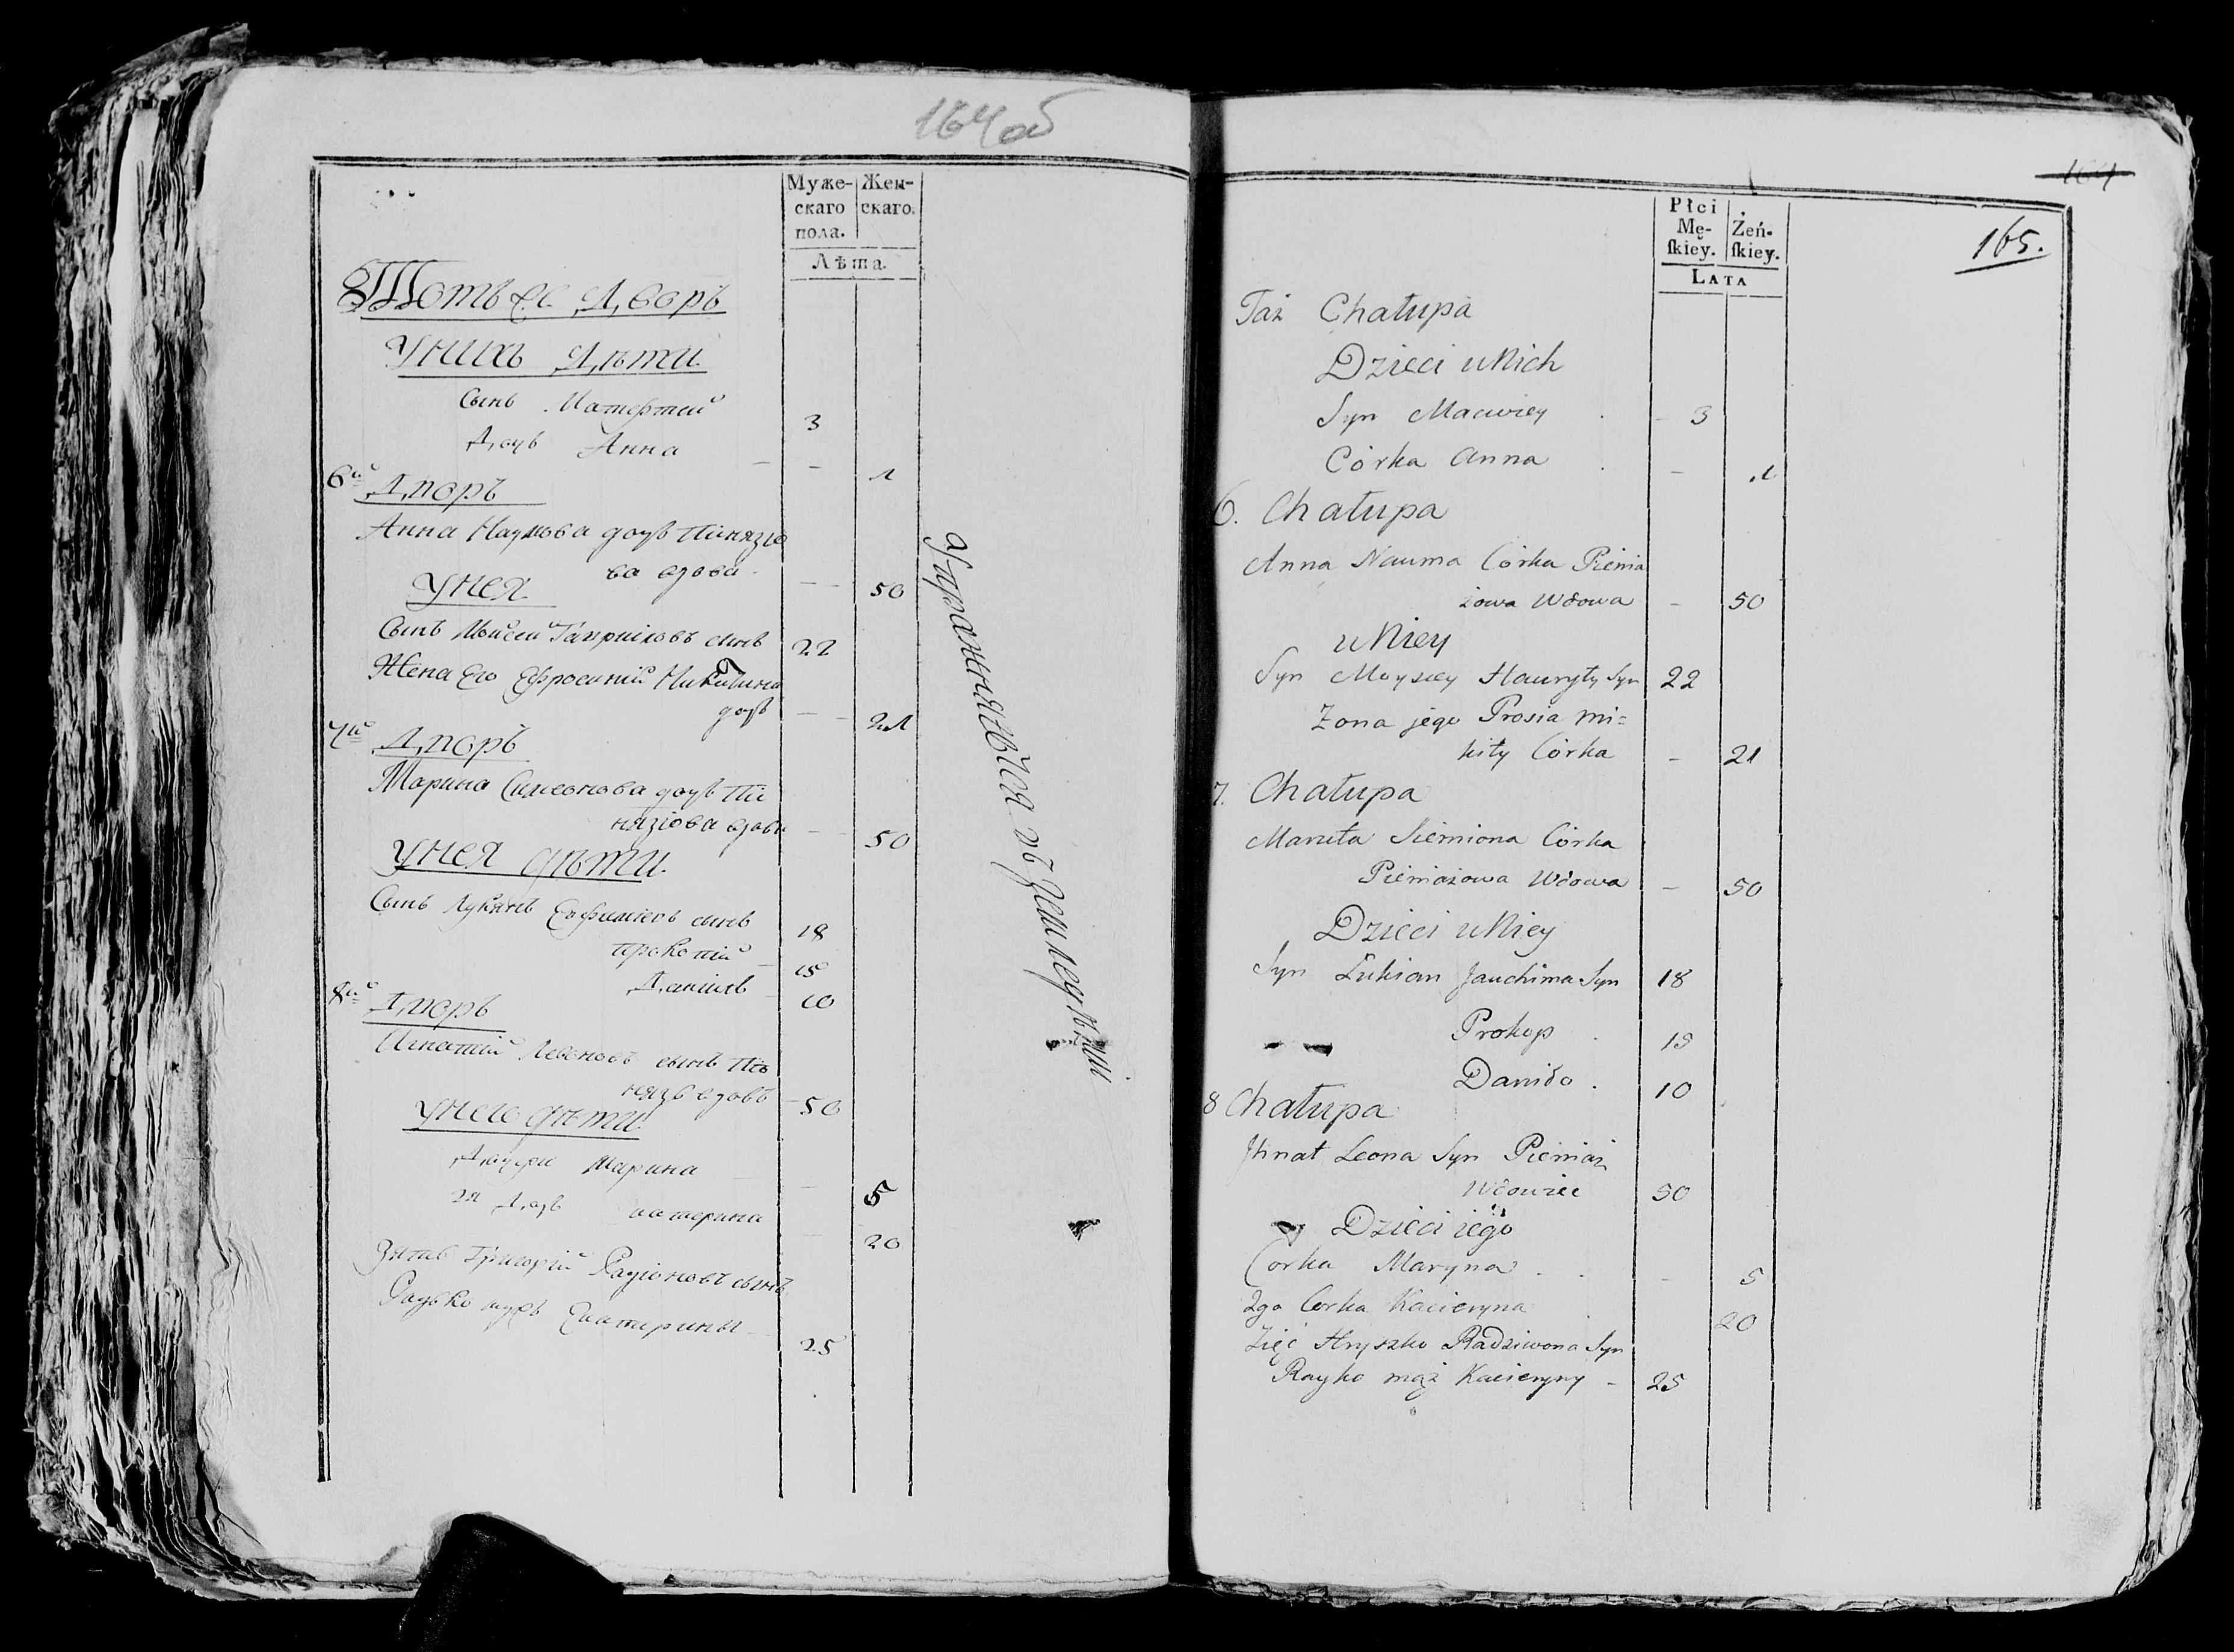 164 об
Муже-
скаго
пола.
Жен-
скаго.
Лѣта.
Тотъ же Дворъ
У нихъ Дѣти
Сынъ Матфей 3
Дочь Анна — — 1
6й Дворъ
Анна Наумова дочь Пѣнязіо
ва вдова — 50
У нея
Сынъ Мойсей Гавриловъ сынъ 22
Жена Его Ефросинія Никитина
дочь — 21
7й Дворъ
Марина Симеонова дочь Пѣ
нязіова вдова — 50
У нея дѣти
Сынъ Лукянъ Евфиміевъ сынъ 18
Прокопій 15
Даніилъ 10
8й Дворъ
Игнатій Левоновъ сынъ Пѣ
нязь вдовъ 50
У него дѣти
Дочери Марина — 5
2я Дочь Екатерина — 20
Зять Григорій Радіоновъ сынъ
Радько мужъ Екатерины 25
упражняются въ земледѣліи
164
165.
Płci
Mę-
ſkiey.
Żeń-
ſkiey.
LATA
Taż Chałupa
Dzieci u Nich
Syn Maciwiey 3
Córka Anna — 1
6. Chałupa
Anna Nauma Córka Pienia
żowa Wdowa — 50
u Niey
Syn Moysiey Hauryły Syn 22
Żona jego Prosia Mi=
kity Córka — 21
7. Chałupa
Maruta Siemiona Córka
Pieniażowa Wdowa — 50
Dzieci u Niey
Syn Łukian Jauchima Syn 18
Prokop 15
Daniło 10
8 Chałupa
Ihnat Leona Syn Pieniaż
Wdowiec 50
Dzieci iego
Corka Maryna — 5
2ga Corka Kacieryna 20
Zięć Hryszko Radziwona Syn
Rayko mąż Kacieryny — 25